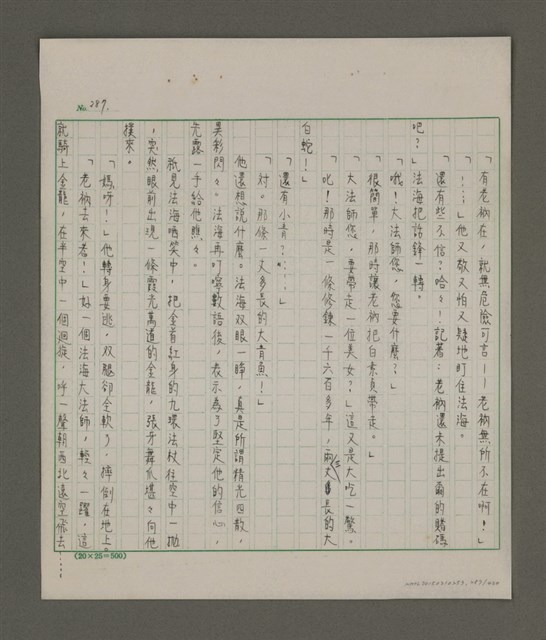 No. 287.
「有老衲在，就無危險可言——老衲無所不在啊！」
「……」他又敬又怕又疑地盯住法海。
「還有些不信？哈々！記著：老衲還未提出爾的賭碼
吧？」法海把話鋒一轉。
「哦！大法師您，您要什麼？」
「很簡單，那時讓老衲把白素貞帶走。」
「大法師您，要帶走一位美女？」這又是大吃一驚。
「叱！那時是一條修鍊一千六百多年，兩丈長的大
白蛇！」
「還有小青？……」
「對。那條一丈多長的大青魚！」
他還想說什麼。法海双眼一睜，真是所謂精光四散，
異彩閃々。法海再叮嚀數語後，表示為了堅定他的信心，
先露一手給他瞧々。
祇見法海哂笑中，把金首紅身的九環法杖往空中一拋
，突然眼前出現一條霞光萬道的金龍，張牙舞爪堪々向他
撲來。
「媽呀！」他轉身要逃，双腿卻全軟了，摔倒在地上。
「老衲去來者！」好一個法海大法師，輕々一躍，這
就騎上金龍，在半空中一個迴旋，呼一聲朝西北遠空飛去……
(20×25=500)